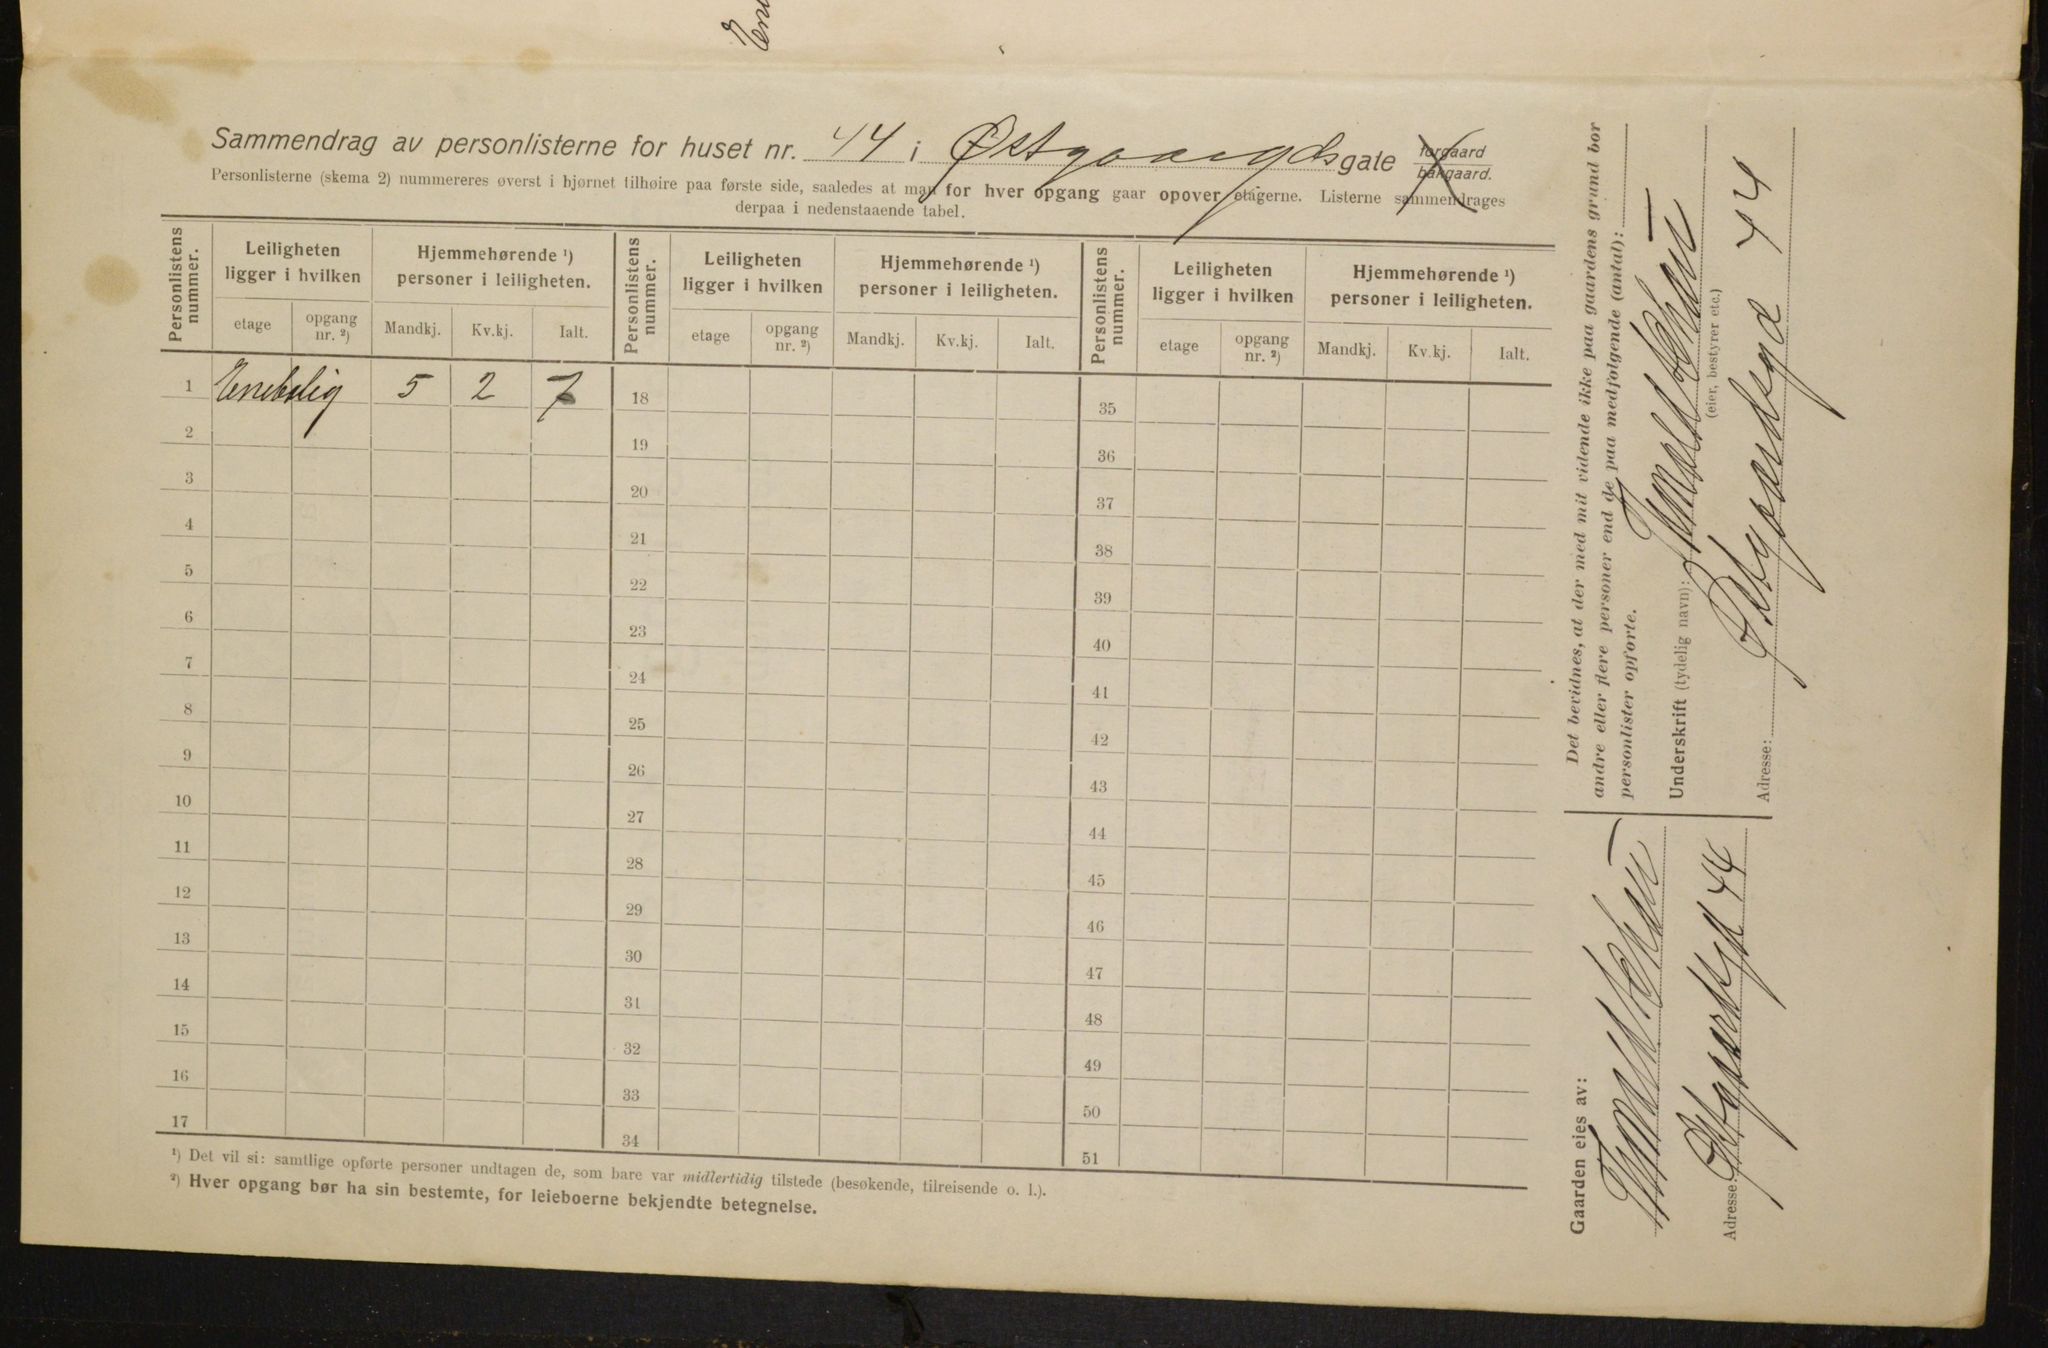 Sammendrag av personlisterne for huset nr. 44 i Østgaardsgate forgaard bakgaard.
Personlisterne (skema 2) nummereres øverst i hjørnet tilhøire paa første side, saaledes at man for hver opgang gaar opover etagerne. Listerne sammendrages
derpaa i nedenstaaende tabel.
Personlistens nummer.
Leiligheten ligger i hvilken
Hjemmehørende ¹) personer i leiligheten.
Personlistens nummer.
Leiligheten ligger i hvilken
Hjemmehørende ¹) personer i leiligheten.
Personlistens nummer.
Leiligheten ligger i hvilken
Hjemmehørende ¹) personer i leiligheten.
etage opgang nr. ²) Mandkj. Kv.kj. Ialt. etage opgang nr. ²) Mandkj. Kv.kj. Ialt. etage opgang nr. ²) Mandkj. Kv.kj. Ialt.
1 Enebolig 5 2 7 18 35
2 19 36
3 20 37
4 21 38
5 22 39
6 23 40
7 24 41
8 25 42
9 26 43
10 27 44
11 28 45
12 29 46
13 30 47
14 31 48
15 32 49
16 33 50
17 34 51
¹) Det vil si: samtlige opførte personer undtagen de, som bare var midlertidig tilstede (besøkende, tilreisende o. l.).
²) Hver opgang bør ha sin bestemte, for leieboerne bekjendte betegnelse.
Det bevidnes, at der med mit vidende ikke paa gaardens grund bor
andre eller flere personer end de paa medfølgende (antal):
personlister opførte.
Underskrift (tydelig navn):
(eier, bestyrer etc.)
Adresse: Østgaardsgd 44
Gaarden eies av:
Adresse: Østgaardsgt 44